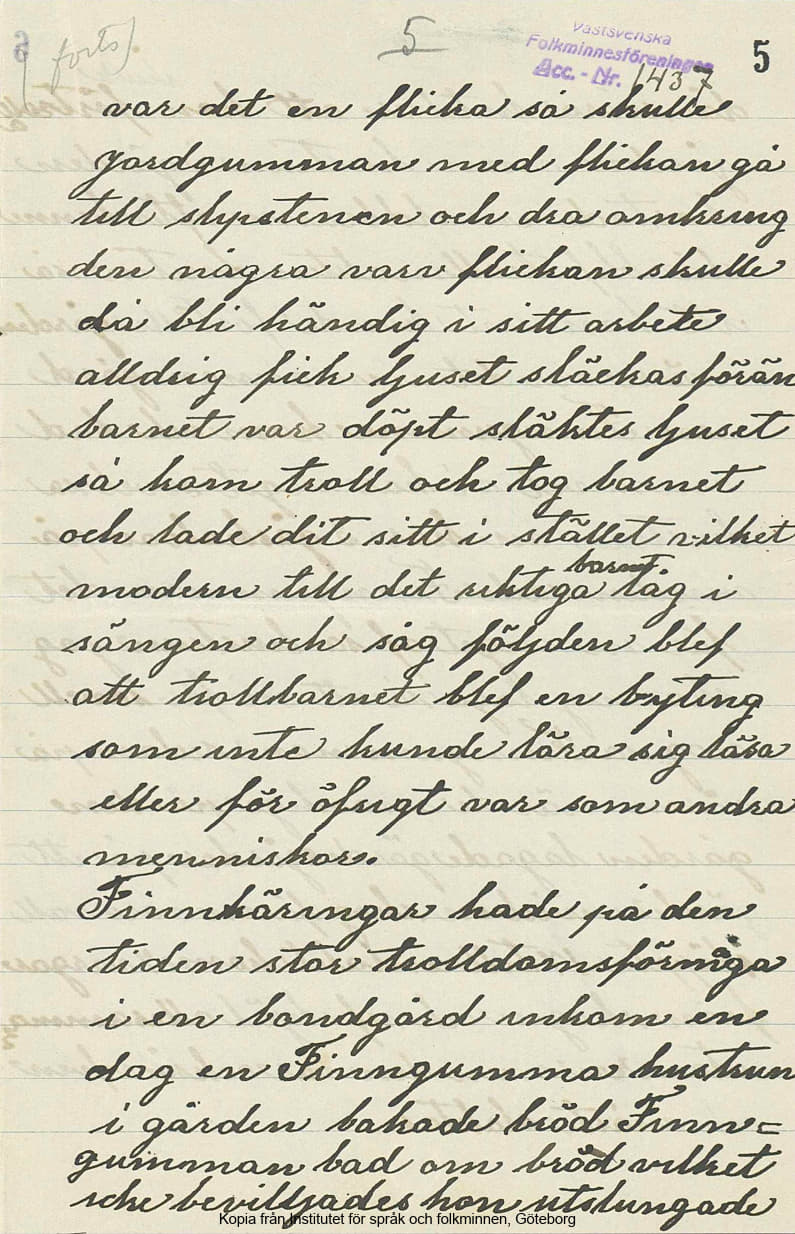 (forts)
5
Västsvenska
Folkminnesföreningen
Acc. - Nr. 1437
5
var det en flicka så skulle
Jordgumman med flickan gå
till slipstenen och dra omkring
den några varv flickan skulle
då bli händig i sitt arbete
alldrig fick ljuset släckas förän
barnet var döpt släktes ljuset
så kom troll och tog barnet
och lade dit sitt i stället vilket
modern till det riktiga barnet låg i
sängen och såg följden blef
att trollbarnet blef en byting
som inte kunde lära sig läsa
eller för öfrigt var som andra
menniskor.
Finnkäringar hade på den
tiden stor trolldomsförmåga
i en bondgård inkom en
dag en Finngumma hustrun
i gården bakade bröd Finn=
gumman bad om bröd vilket
icke beviljades hon utslungade
Kopia från Institutet för språk och folkminnen, Göteborg